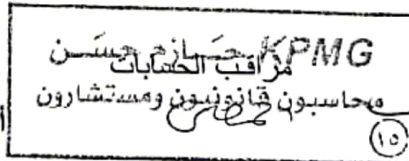 KPMG حازم حسن
مراقب الحسابات
محاسبون قانونيون ومستشارون
(١٥)